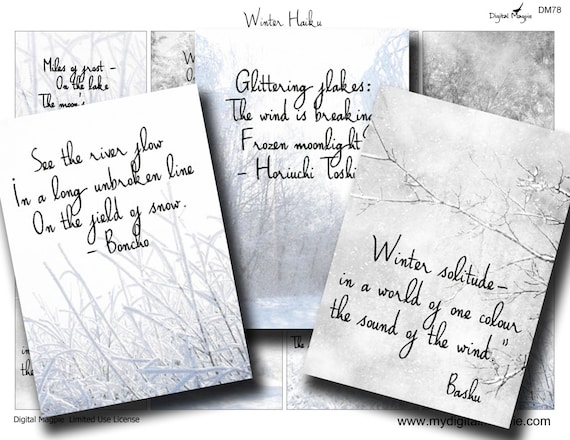 Winter Haiku
Digital Magpie
DM78
Miles of frost –
On the lake
The moon's
Glittering flakes:
The wind is breaking
Frozen moonlight
– Horiuchi Toshi
See the river flow
In a long unbroken line
On the field of snow.
– Boncho
Winter solitude–
in a world of one colour
the sound of the wind."
Bashu
in
The
Digital Magpie Limited Use License
www.mydigitalm
ie.com